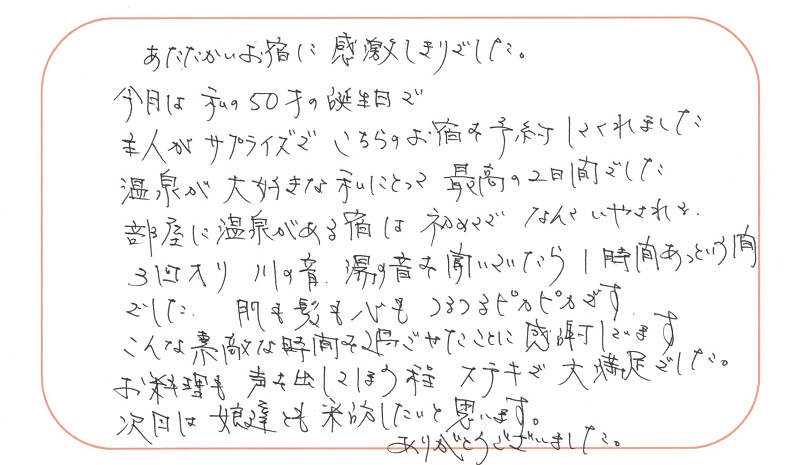 あたたかいお宿に感激しまりでした。
今月は私の50才の誕生日で
主人がサプライズでこちらのお宿を予約してくれました
温泉が大好きな私にとって最高の2日間でした
部屋に温泉がある宿は初めてでなんていやされる、
3回入り川の音、湯の音を聞いていたら1時間あっという間
でした。肌も髪も心もつるつるピカピカです。
こんな素敵な時間を過ごせたことに感謝しています
お料理も声を出してしまう程ステキで大満足でした。
次回は娘達とも来訪したいと思います。
ありがとうございました。